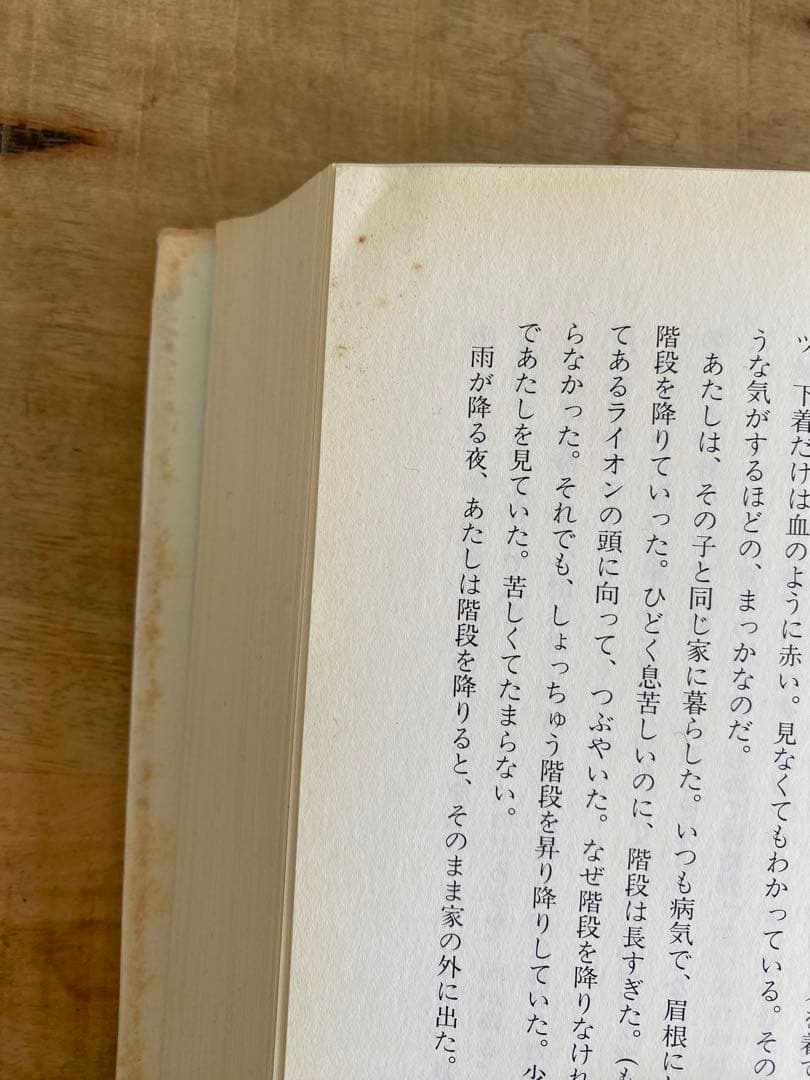 ッ 下着だけは血のように赤い。見なくてもわかっている。その
うな気がするほどの、まっかなのだ。
あたしは、その子と同じ家に暮らした。いつも病気で、眉根に
階段を降りていった。ひどく息苦しいのに、階段は長すぎた。（も
てあるライオンの頭に向って、つぶやいた。なぜ階段を降りなけれ
らなかった。それでも、しょっちゅう階段を昇り降りしていた。少
であたしを見ていた。苦しくてたまらない。
雨が降る夜、あたしは階段を降りると、そのまま家の外に出た。